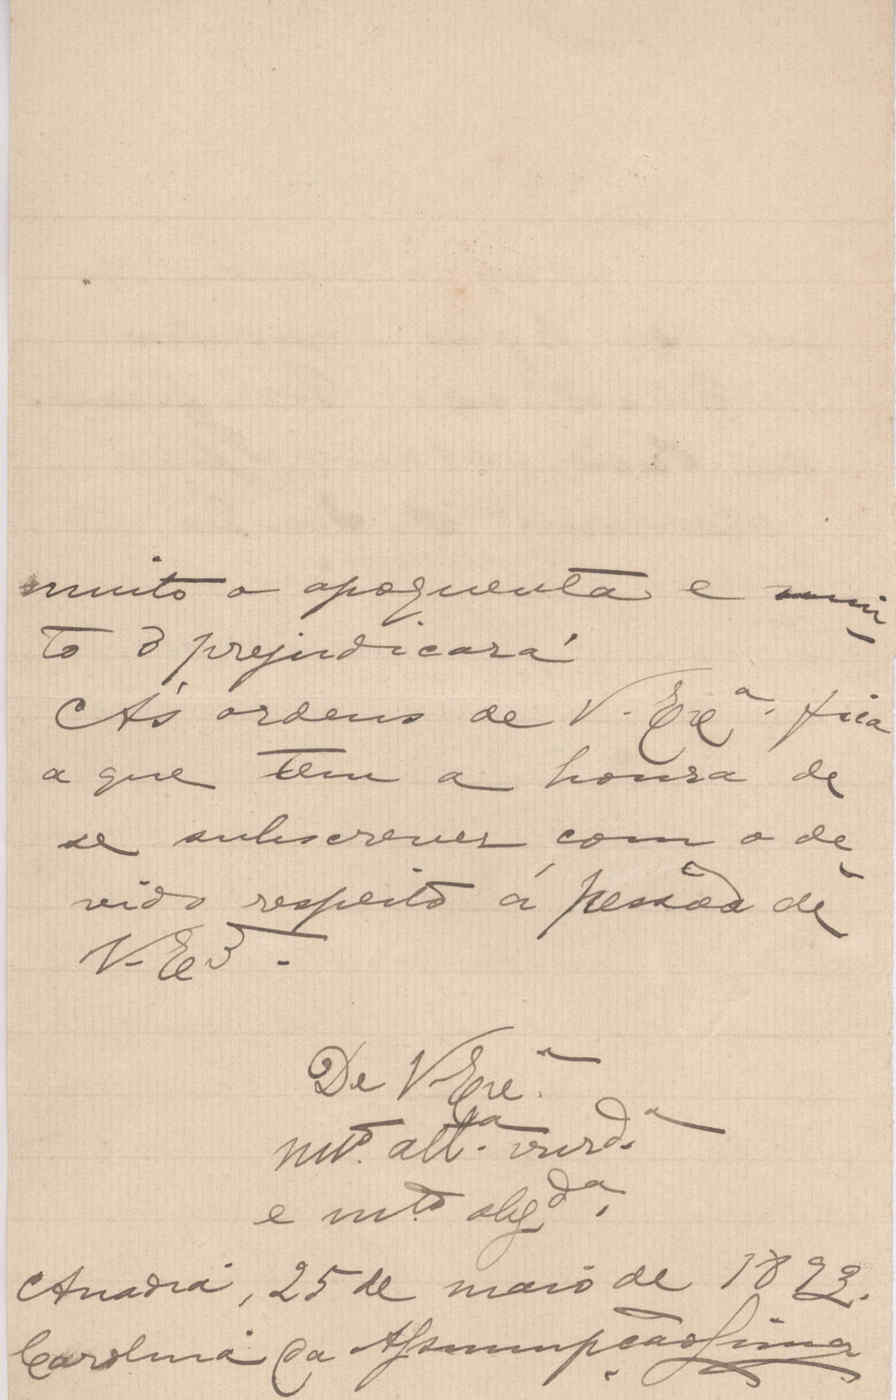 muito o apoquenta e mui-
to o prejudicará
Ás ordens de V. Exc.ª fica
a que tem a honra de
se subscrever com o de-
vido respeito á pessôa de
V. Ex.ª
De V. Exc.ª
mt.º att.ª ven.dª
e mt.º obg.dª
Anadia, 25 de maio de 1893.
Carolina da Assumpção Lima